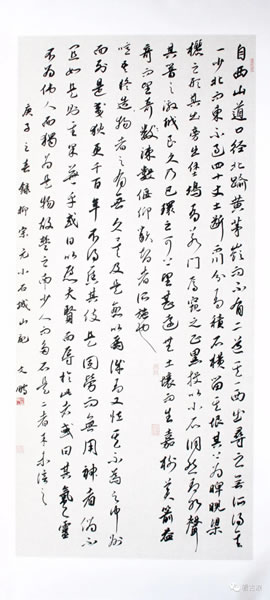 自西山道口径北踰黄茅岭而下有二道其一西出寻之无所得其
一少北而东不过四十丈土断而川分有积石横当其垠其上为睥睨梁
欐之形其旁出堡坞有若门焉窥之正黑投以小石洞然有水声
其响之激越良久乃已环之可上望甚远无土壤而生嘉树美箭益
奇而坚其疏数偃仰类智者所施设也
噫吾疑造物者之有无久矣及是愈以为诚有又怪其不为之中州
而列是夷狄更千百年不得一售其伎是固劳而无用神者倘不
宜如是则其果无乎或曰以慰夫贤而辱于此者或曰其气之灵
不为伟人而独为是物故楚之南少人而多石是二者余未信之
庚子之春录柳宗元小石城山记